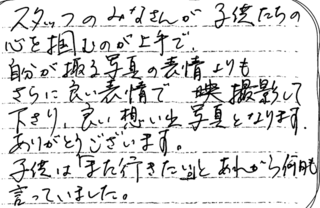 スタッフのみなさんが子供たちの
心を掴むのが上手で、
自分が撮る写真の表情よりも
さらに良い表情で 撮影して
下さり、良い想い出写真となります。
ありがとうございます。
子供は「また行きたい」とあれから何回も
言っていました。